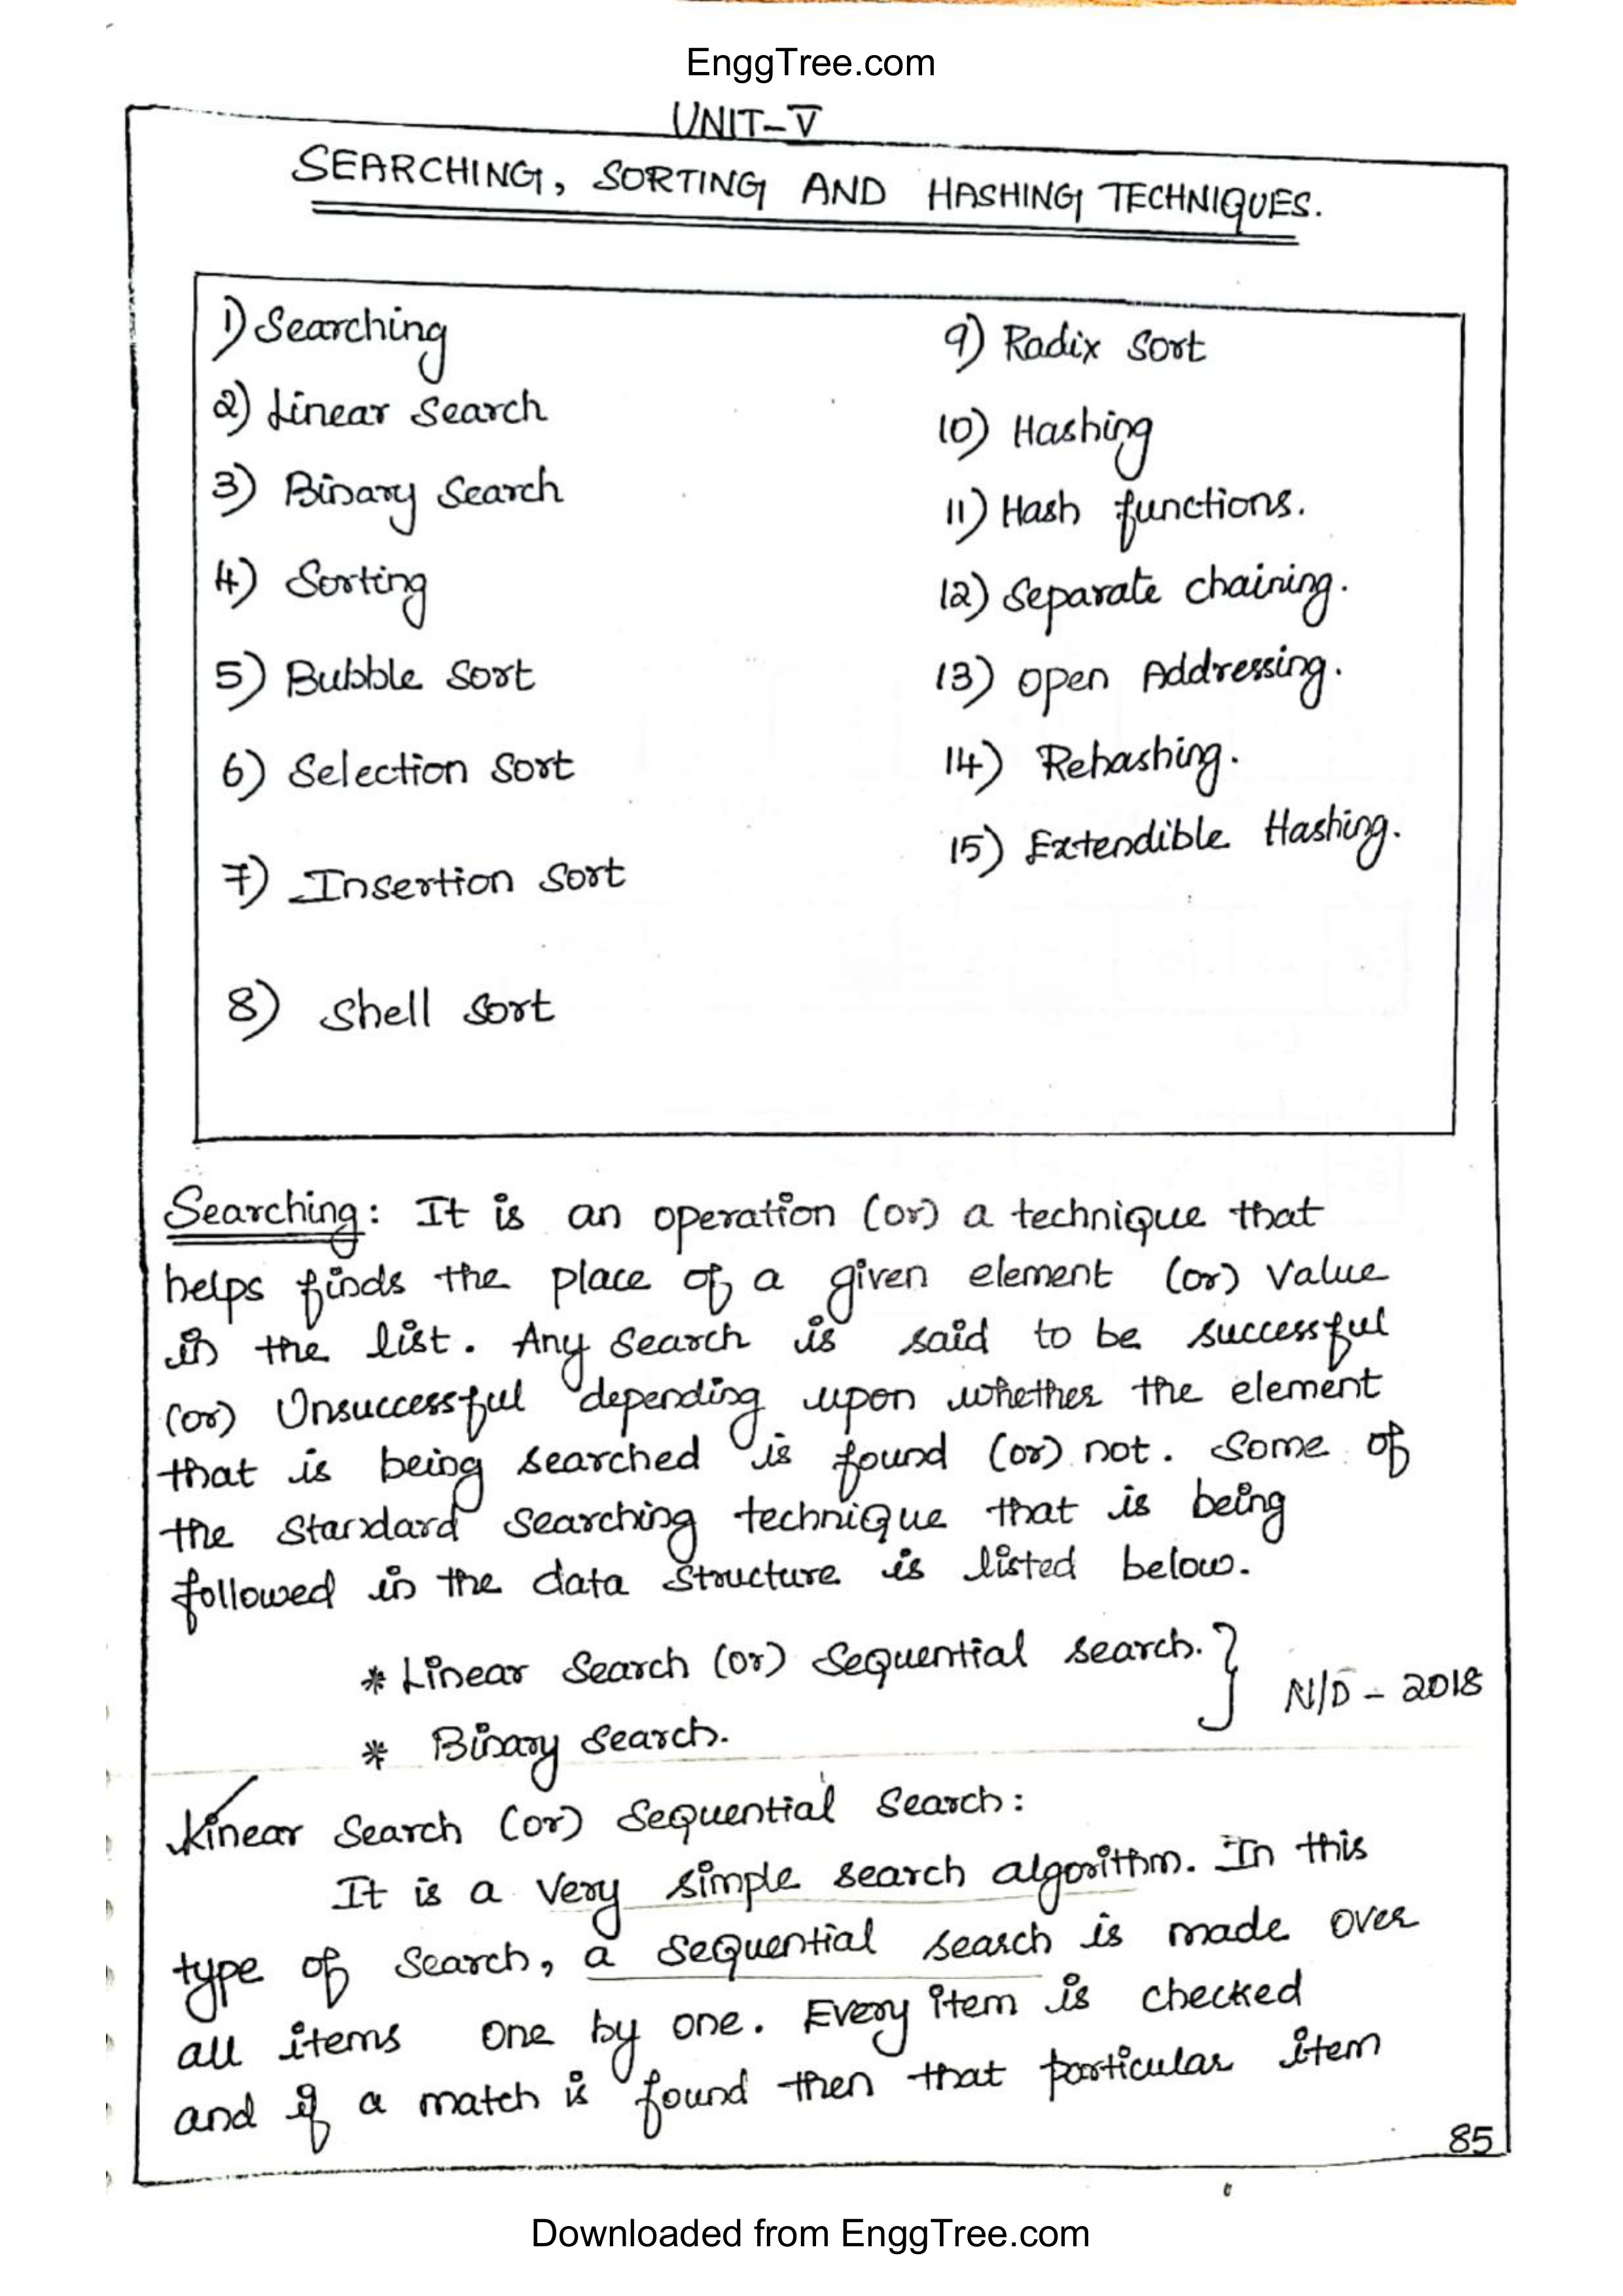 EnggTree.com
UNIT-V
SEARCHING, SORTING AND HASHING TECHNIQUES.
1) Searching
2) Linear Search
3) Binary Search
4) Sorting
5) Bubble Sort
6) Selection Sort
7) Insertion Sort
8) Shell Sort
9) Radix Sort
10) Hashing
11) Hash functions.
12) Separate chaining.
13) Open Addressing.
14) Rehashing.
15) Extendible Hashing.
Searching: It is an operation (or) a technique that
helps finds the place of a given element (or) Value
in the list. Any Search is said to be successful
(or) Unsuccessful depending upon whether the element
that is being searched is found (or) not. Some of
the Standard Searching technique that is being
followed in the data Structure is listed below.
* Linear Search (or) Sequential search. } N/D - 2018
* Binary Search.
Linear Search (or) Sequential Search:
It is a very simple search algorithm. In this
type of Search, a Sequential search is made over
all items one by one. Every item is checked
and if a match is found then that particular item
85
Downloaded from EnggTree.com